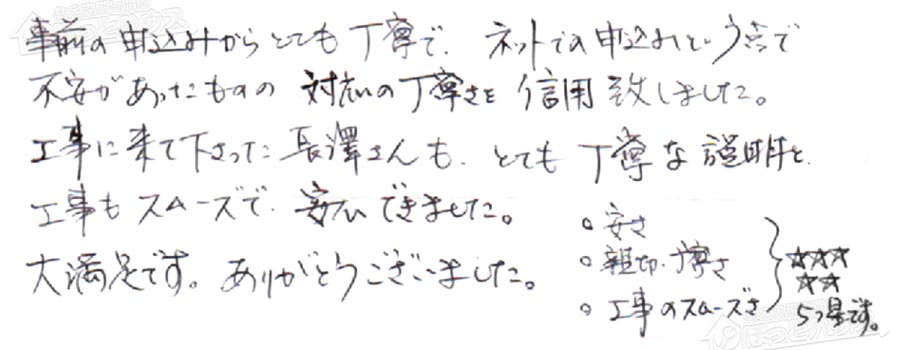 事前の申込みからとても丁寧で、ネットでの申込みという点で
不安があったものの対応の丁寧さを信用致しました。
工事に来て下さった長澤さんも、とても丁寧な説明と
工事もスムーズで、安心できました。
大満足です。ありがとうございました。
○安さ
○親切、丁寧さ
○工事のスムーズさ
☆☆☆
☆☆
5つ星です。